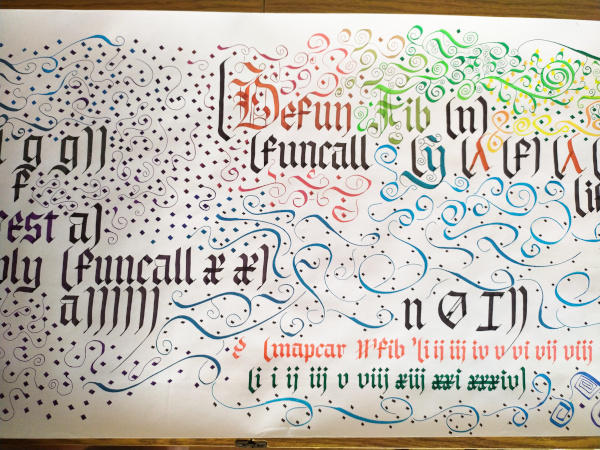 g g))
f
rest a)
ply (funcall x x)
a)))))
(Defun Fib (n)
(funcall (y (λ (f) (λ (
(if
n 0 I))
(mapcar #'fib '(i ij iij iv v vi vij viij
(i i ij iij v viij xiij xxi xxxiv)